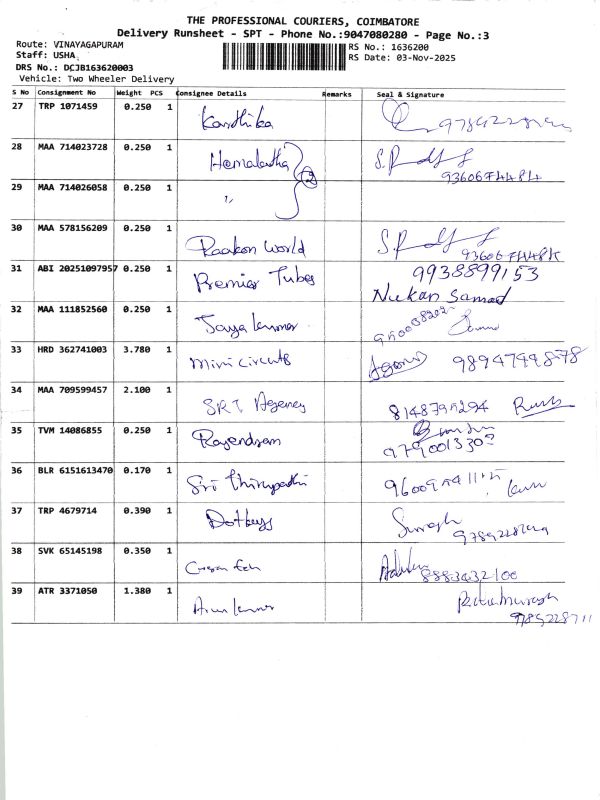 THE PROFESSIONAL COURIERS, COIMBATORE
Delivery Runsheet - SPT - Phone No.:9047080280 - Page No.:3
Route: VINAYAGAPURAM
RS No.: 1636200
Staff: USHA
RS Date: 03-Nov-2025
DRS No.: DCJB163620003
Vehicle: Two Wheeler Delivery
S No Consignment No Weight PCS Consignee Details Remarks Seal & Signature
27 TRP 1071459 0.250 1 Karthika
28 MAA 714023728 0.250 1 Hemalatha
93606
29 MAA 714026058 0.250 1 "
30 MAA 578156209 0.250 1 Raakon World
31 ABI 20251097957 0.250 1 Premier Tubes 9938899153
Samad
32 MAA 111852560 0.250 1 Jaya
33 HRD 362741003 3.780 1 Mini circuits
34 MAA 709599457 2.100 1 SRT Agency 8148795294
35 TVM 14086855 0.250 1 Rajendran
36 BLR 6151613470 0.170 1 Sri Thirupathi
37 TRP 4679714 0.390 1
38 SVK 65145198 0.350 1
8883432100
39 ATR 3371050 1.380 1 Arun